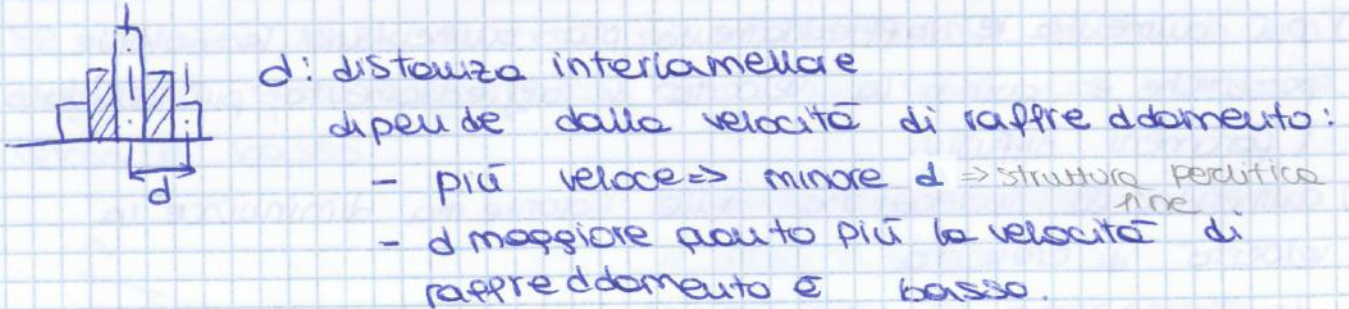 d: distanza interlamellare
dipende dalla velocità di raffreddamento:
- più veloce => minore d => struttura perlitica
fine
- d maggiore quanto più la velocità di
raffreddamento è bassa.
d